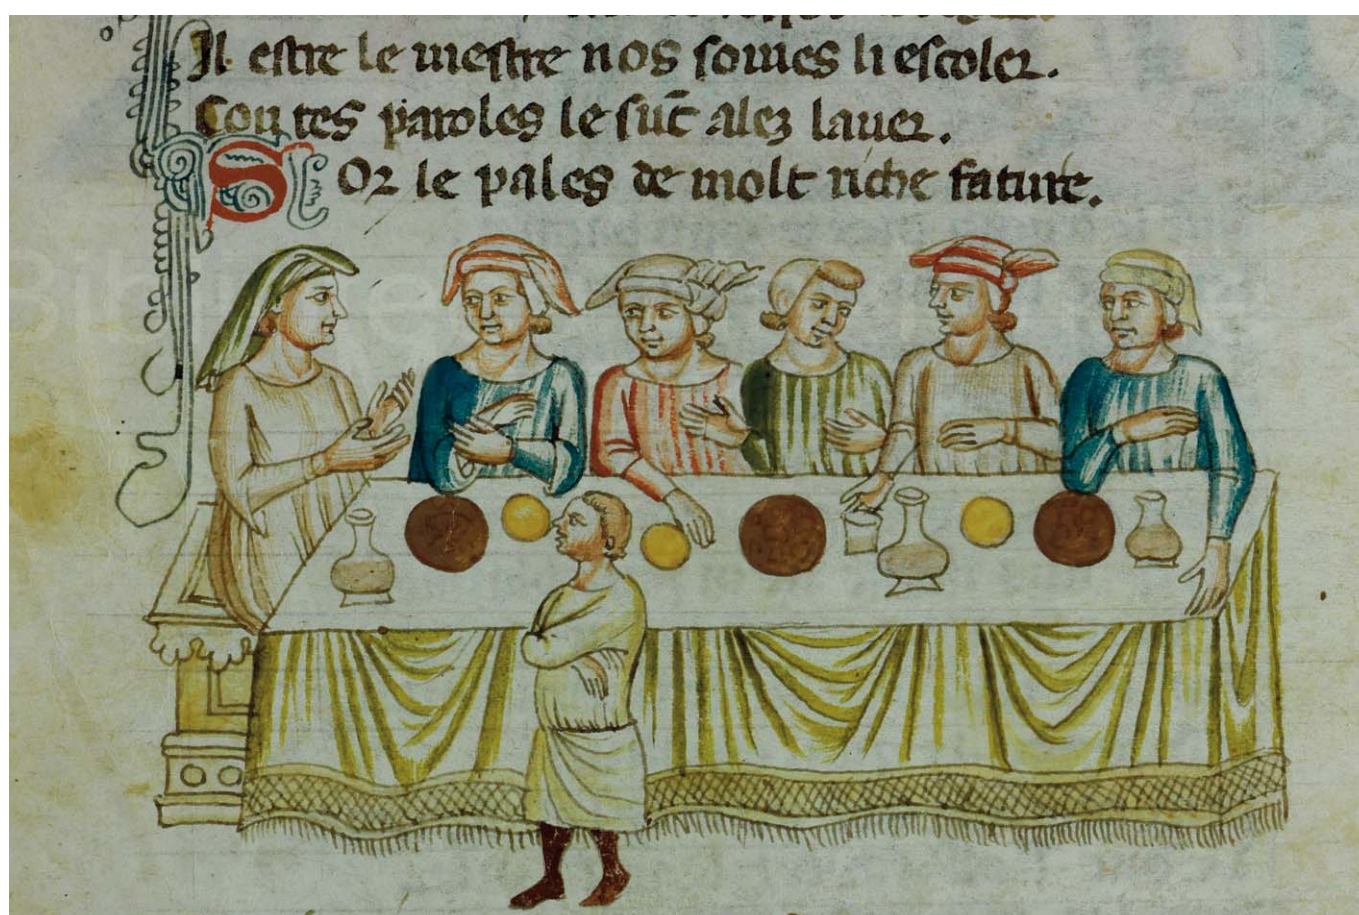 Il estre le mestre nos somes li escoler.
Con tes paroles le suc̄ alez lauer.
SOr le pales de molt riche fature.